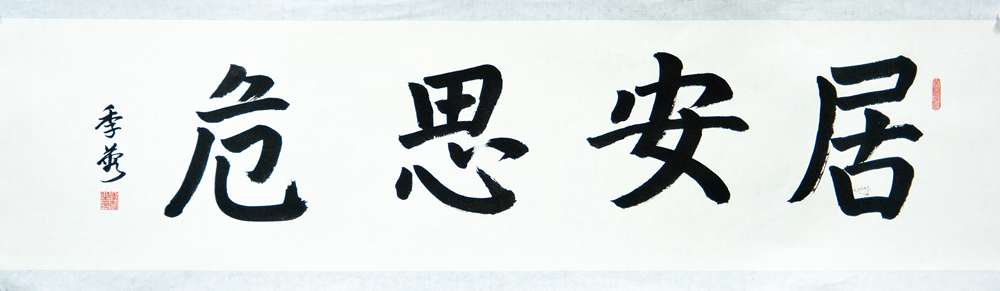 居安思危
季